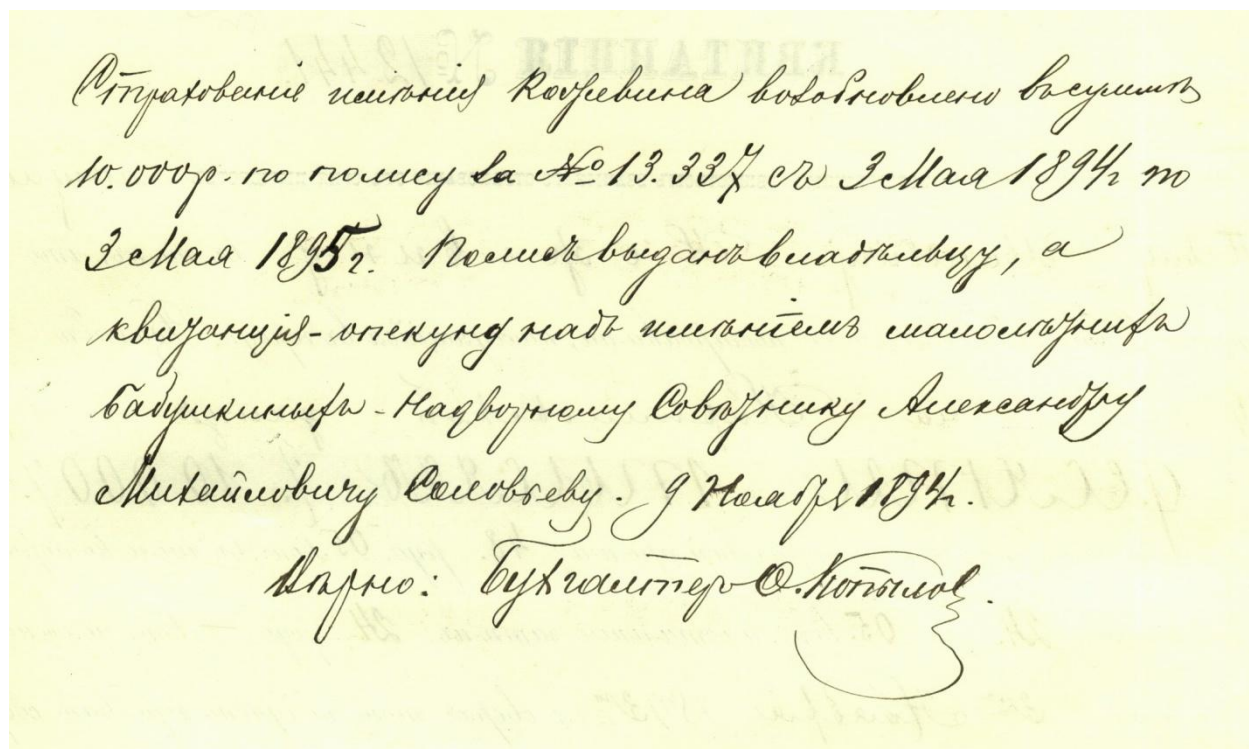 Страхованіе имѣнія Кожевина возобновлено въ суммѣ
10.000 р по полису за № 13.337 съ 3 Мая 1894 г по
3 Мая 1895 г. Полисъ выданъ владѣльцу, а
квитанція - опекуну надъ имѣніемъ малолѣтнихъ
Бабушкиныхъ - Надворному Совѣтнику Александру
Михайловичу Соловьеву. 9 Ноября 1894 г.
Вѣрно: Бухгалтеръ О. Копылов.